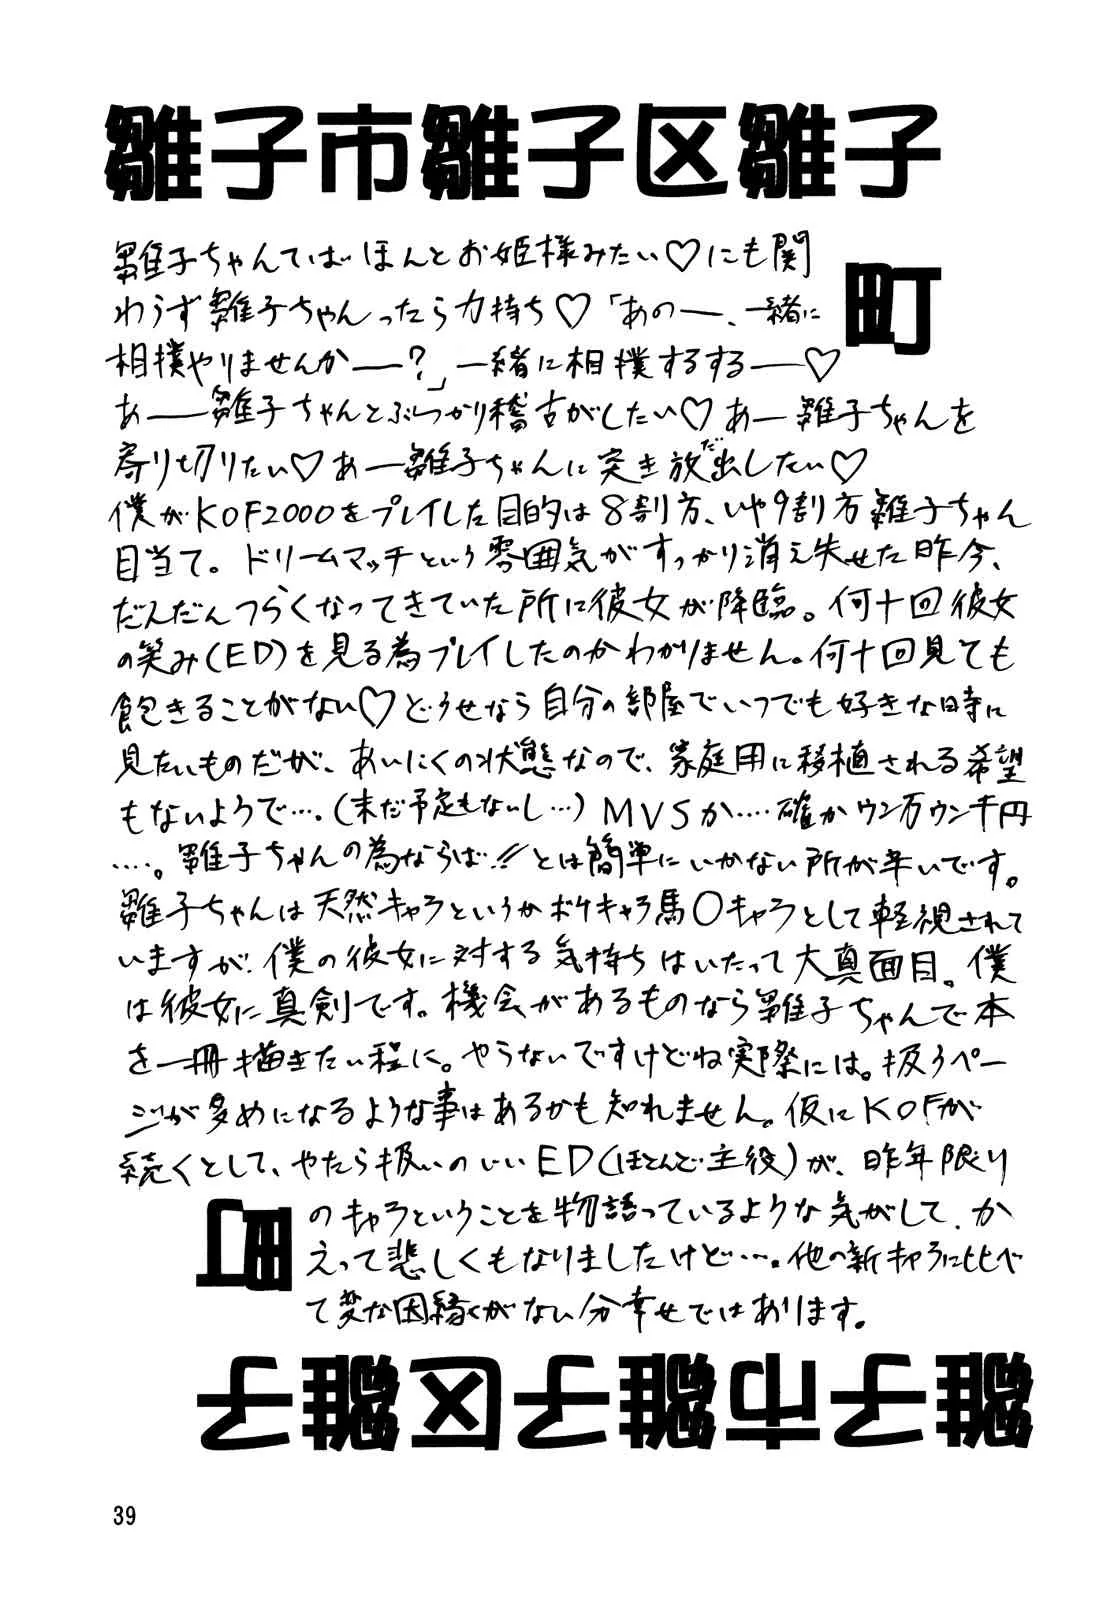 雛子市雛子区雛子
町
雛子ちゃんてばほんとお姫様みたい♡にも関
わらず雛子ちゃんったら力持ち♡「あのー、一緒に
相撲やりませんかー?」一緒に相撲するするー♡
あー雛子ちゃんとぶつかり稽古がしたい♡あー雛子ちゃんを
寄り切りたい♡あー雛子ちゃんに突き放だ出したい♡
僕がKOF2000をプレイした目的は8割方、いや9割方雛子ちゃん
目当て。ドリームマッチという雰囲気がすっかり消え失せた昨今、
だんだんつらくなってきていた所に彼女が降臨。何十回彼女
の笑み(ED)を見る為プレイしたのかわかりません。何十回見ても
飽きることがない♡どうせなら自分の部屋でいつでも好きな時に
見たいものだが、あいにくの状態なので、家庭用に移植される希望
もないようで…。(未だ予定もないし…)MVSか‥‥確かウン万ウン千円
‥‥。雛子ちゃんの為ならば!!とは簡単にいかない所が辛いです。
雛子ちゃんは天然キャラというかボケキャラ馬〇キャラとして軽視されて
いますが、僕の彼女に対する気持ちはいたって大真面目。僕
は彼女に真剣です。機会があるものなら雛子ちゃんで本
を一冊描きたい程に。やらないですけどね実際には。扱うペー
ジが多めになるような事はあるかも知れません。仮にKOFが
続くとして、やたら扱いのいいED(ほとんど主役)が、昨年限り
のキャラということを物語っているような気がして、か
えって悲しくもなりましたけど…。他の新キャラに比べ
て変な因縁がない分幸せではあります。
町
雛子市雛子区雛子
39